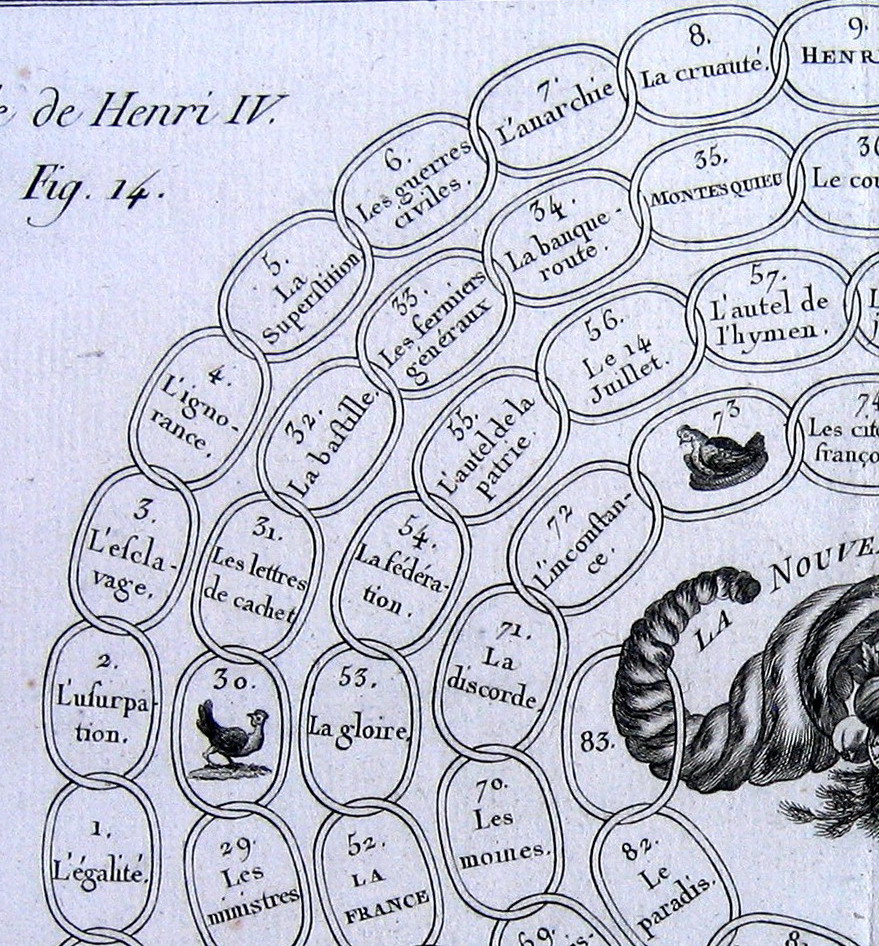 de Henri IV.
Fig. 14.
1.
L'égalité.
2.
L'uſurpa-
tion.
3.
L'eſcla-
vage.
4.
L'igno-
rance.
5.
La
Superſtition
6.
Les guerres
civiles.
7.
L'anarchie
8.
La cruauté.
9.
HENR
29.
Les
miniſtres
30.
31.
Les lettres
de cachet
32.
La baſtille.
33.
Les fermiers
généraux
34.
La banque-
route.
35.
MONTESQUIEU
Le cou
52.
LA
FRANCE
53.
La gloire.
54.
La fédéra-
tion.
55.
L'autel de la
patrie.
56.
Le 14
Juillet.
57.
L'autel de
l'hymen.
69.
70.
Les
moines.
71.
La
diſcorde.
72
L'inconſtan-
ce.
73
74
Les cito
franço
82.
Le
paradis.
83.
LA NOUVE